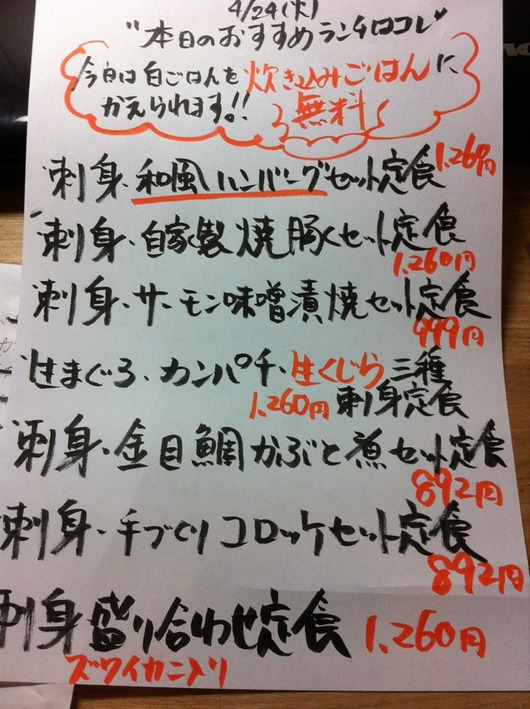 4/24(木)
"本日のおすすめランチはコレ"
今日は白ごはんを炊き込みごはんに
かえられます!! 無料
刺身、和風ハンバーグセット定食 1,260円
刺身、自家製焼豚セット定食
1,260円
刺身、サーモン味噌漬焼セット定食
999円
生まぐろ、カンパチ、生くじら三種
1,260円 刺身定食
刺身、金目鯛かぶと煮セット定食
892円
刺身、手づくりコロッケセット定食
892円
刺身盛り合わせ定食 1,260円
ズワイカニ入り